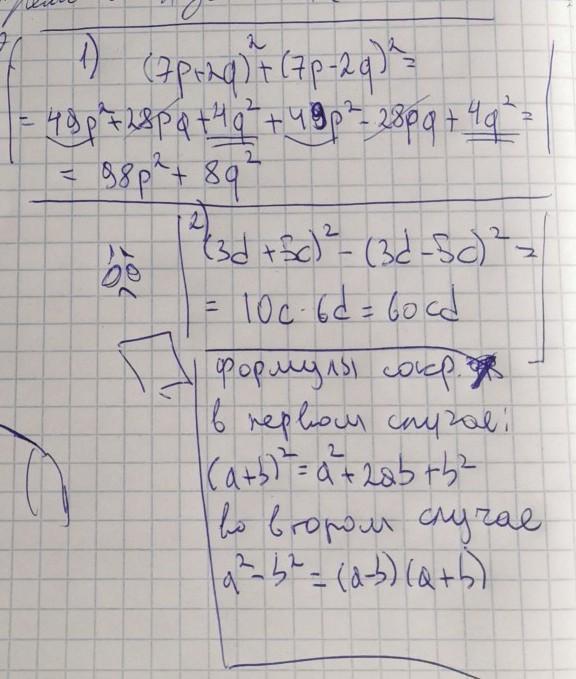 1) (7p+2q)² + (7p-2q)² =
= 49p² + 28pq + 4q² + 49p² - 28pq + 4q² =
= 98p² + 8q²
2) (3d + 5c)² - (3d - 5c)² =
= 10c · 6d = 60cd
формулы сокр.
в первом случае:
(a+b)² = a² + 2ab + b²
во втором случае
a² - b² = (a-b)(a+b)